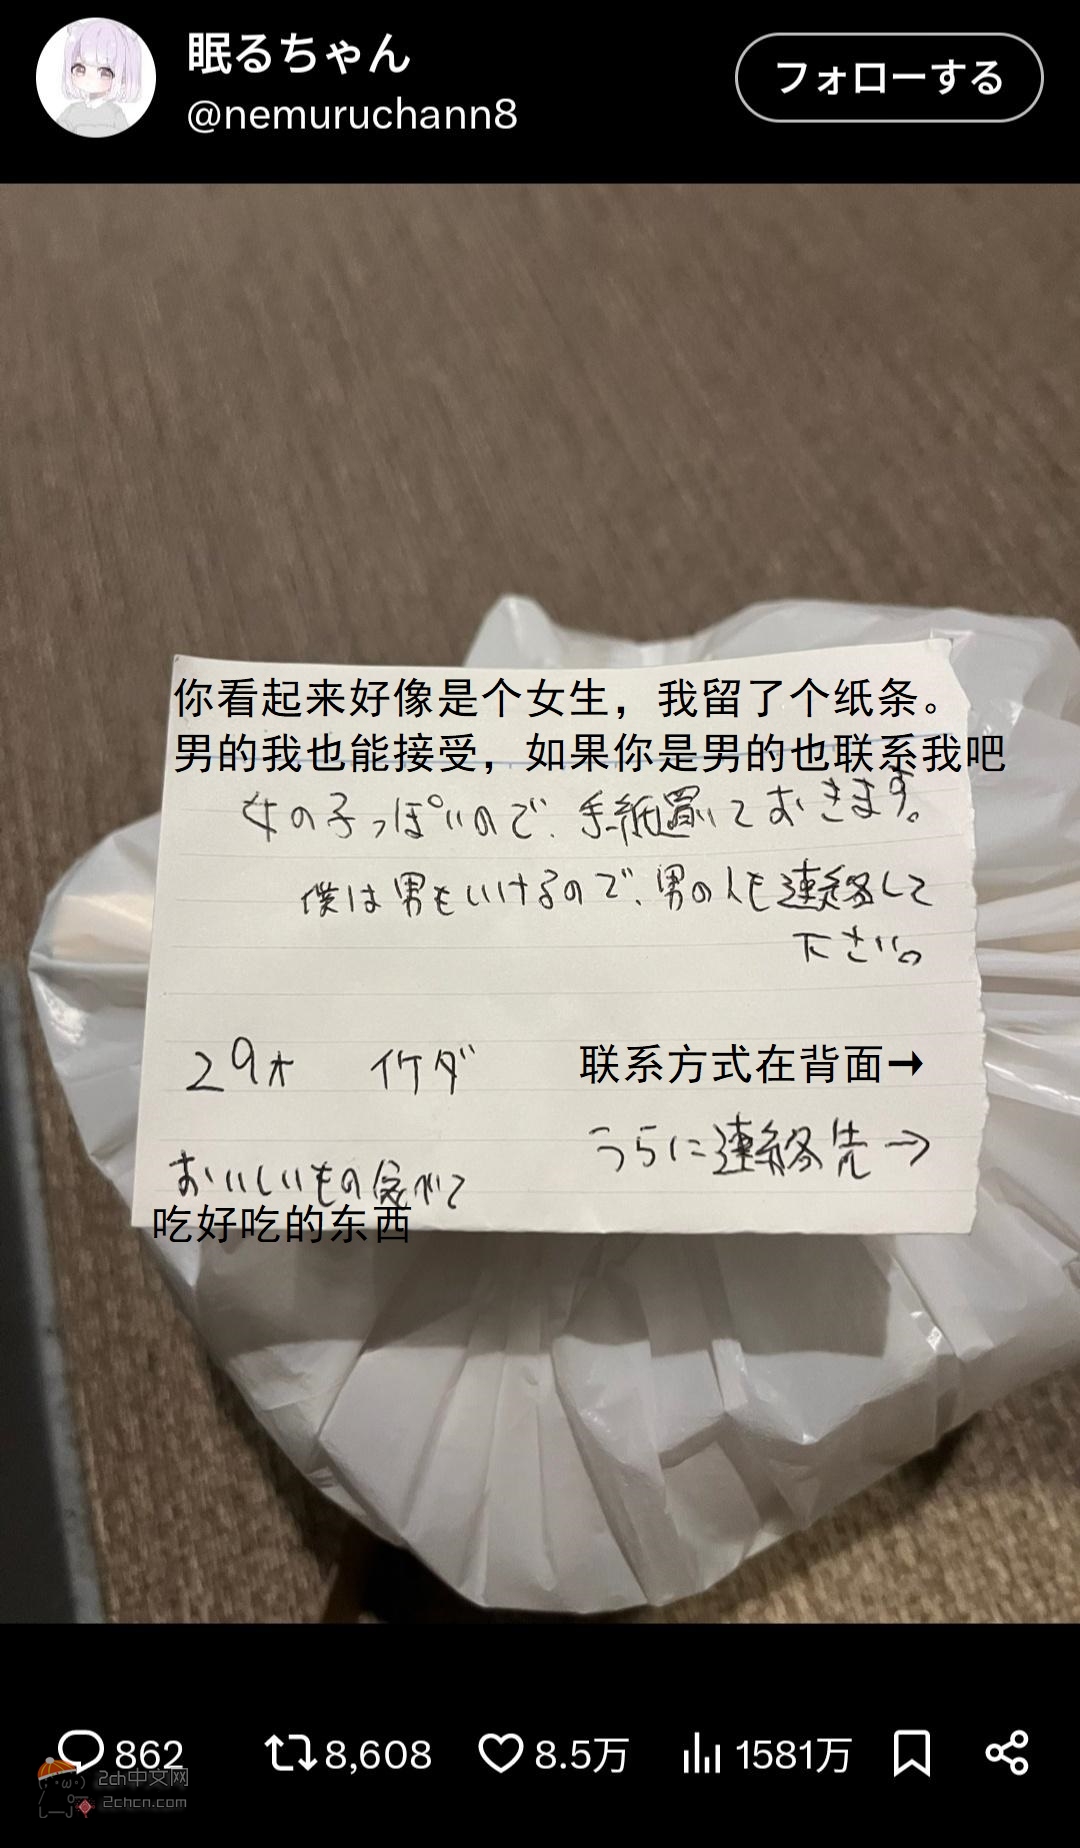 眠るちゃん
@nemuruchann8
フォローする
你看起来好像是个女生，我留了个纸条。
男的我也能接受，如果你是男的也联系我吧
女の子っぽいので、手紙置いておきます。
僕は男もいけるので、男の人も連絡して
下さい。
29才 イケダ
联系方式在背面→
うらに連絡先→
おいしいもの食べて
吃好吃的东西
862 8,608 8.5万 1581万
2ch中文网
2chcn.com